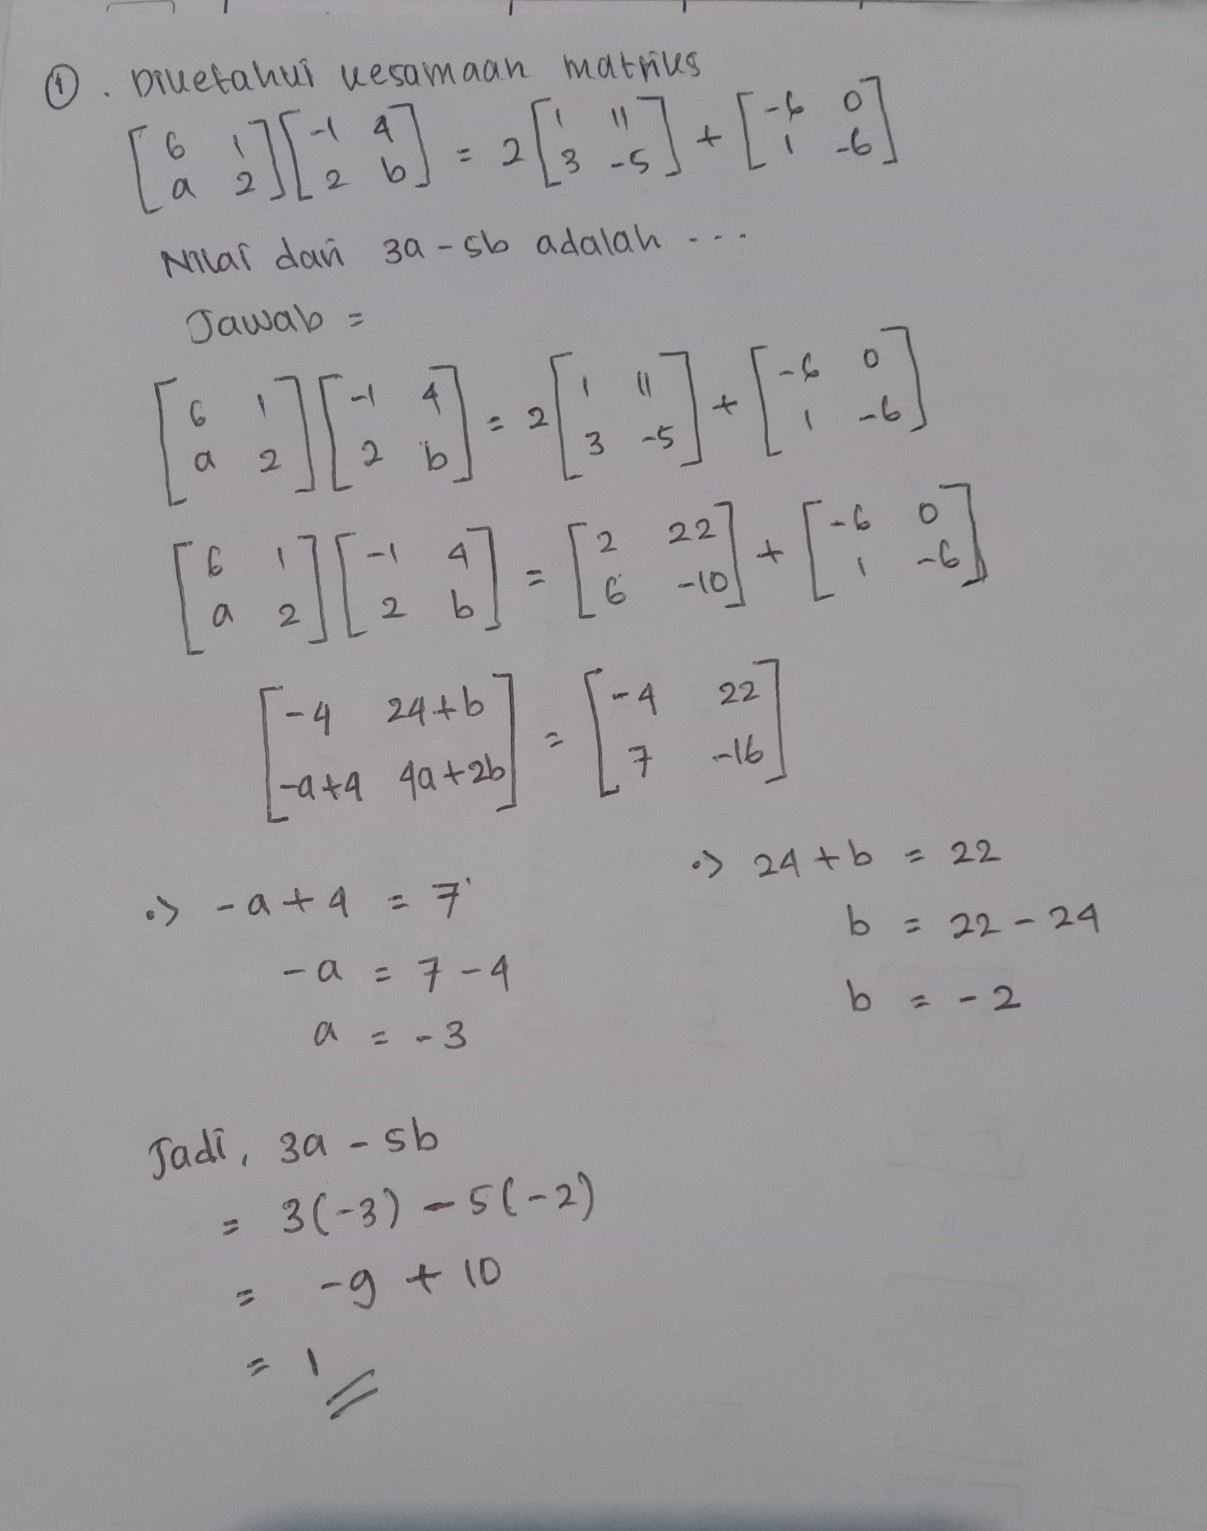 ①. Diketahui kesamaan matriks
[6 1; a 2] [-1 4; 2 b] = 2 [1 11; 3 -5] + [-6 0; 1 -6]
Nilai dari 3a - 5b adalah ...
Jawab =
[6 1; a 2] [-1 4; 2 b] = 2 [1 11; 3 -5] + [-6 0; 1 -6]
[6 1; a 2] [-1 4; 2 b] = [2 22; 6 -10] + [-6 0; 1 -6]
[-4 24+b; -a+4 4a+2b] = [-4 22; 7 -16]
•> -a + 4 = 7
-a = 7 - 4
a = -3
•> 24 + b = 22
b = 22 - 24
b = -2
Jadi, 3a - 5b
= 3(-3) - 5(-2)
= -9 + 10
= 1